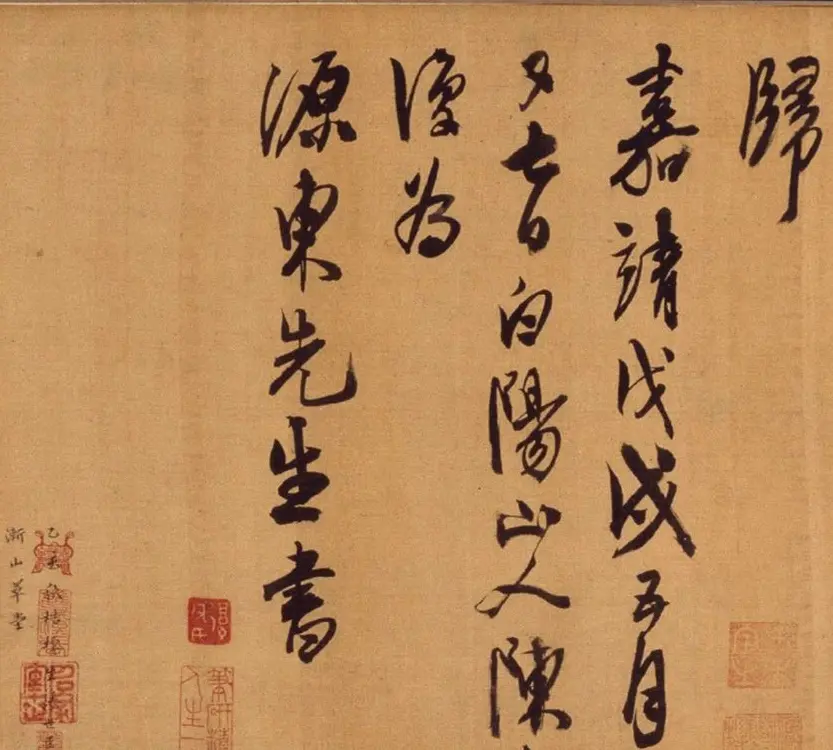 歸
嘉靖戊戌五月
又七日白陽山人陳
復為
源東先生書
漸山草堂